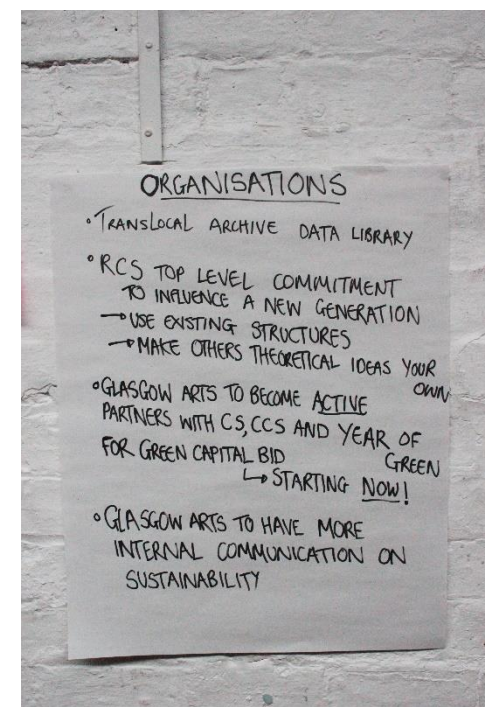 ORGANISATIONS
° TRANSLOCAL ARCHIVE DATA LIBRARY
° RCS TOP LEVEL COMMITMENT
TO INFLUENCE A NEW GENERATION
→ USE EXISTING STRUCTURES
→ MAKE OTHERS THEORETICAL IDEAS YOUR
OWN
° GLASGOW ARTS TO BECOME ACTIVE
PARTNERS WITH CS, CCS AND YEAR OF
GREEN
FOR GREEN CAPITAL BID
↳ STARTING NOW!
° GLASGOW ARTS TO HAVE MORE
INTERNAL COMMUNICATION ON
SUSTAINABILITY